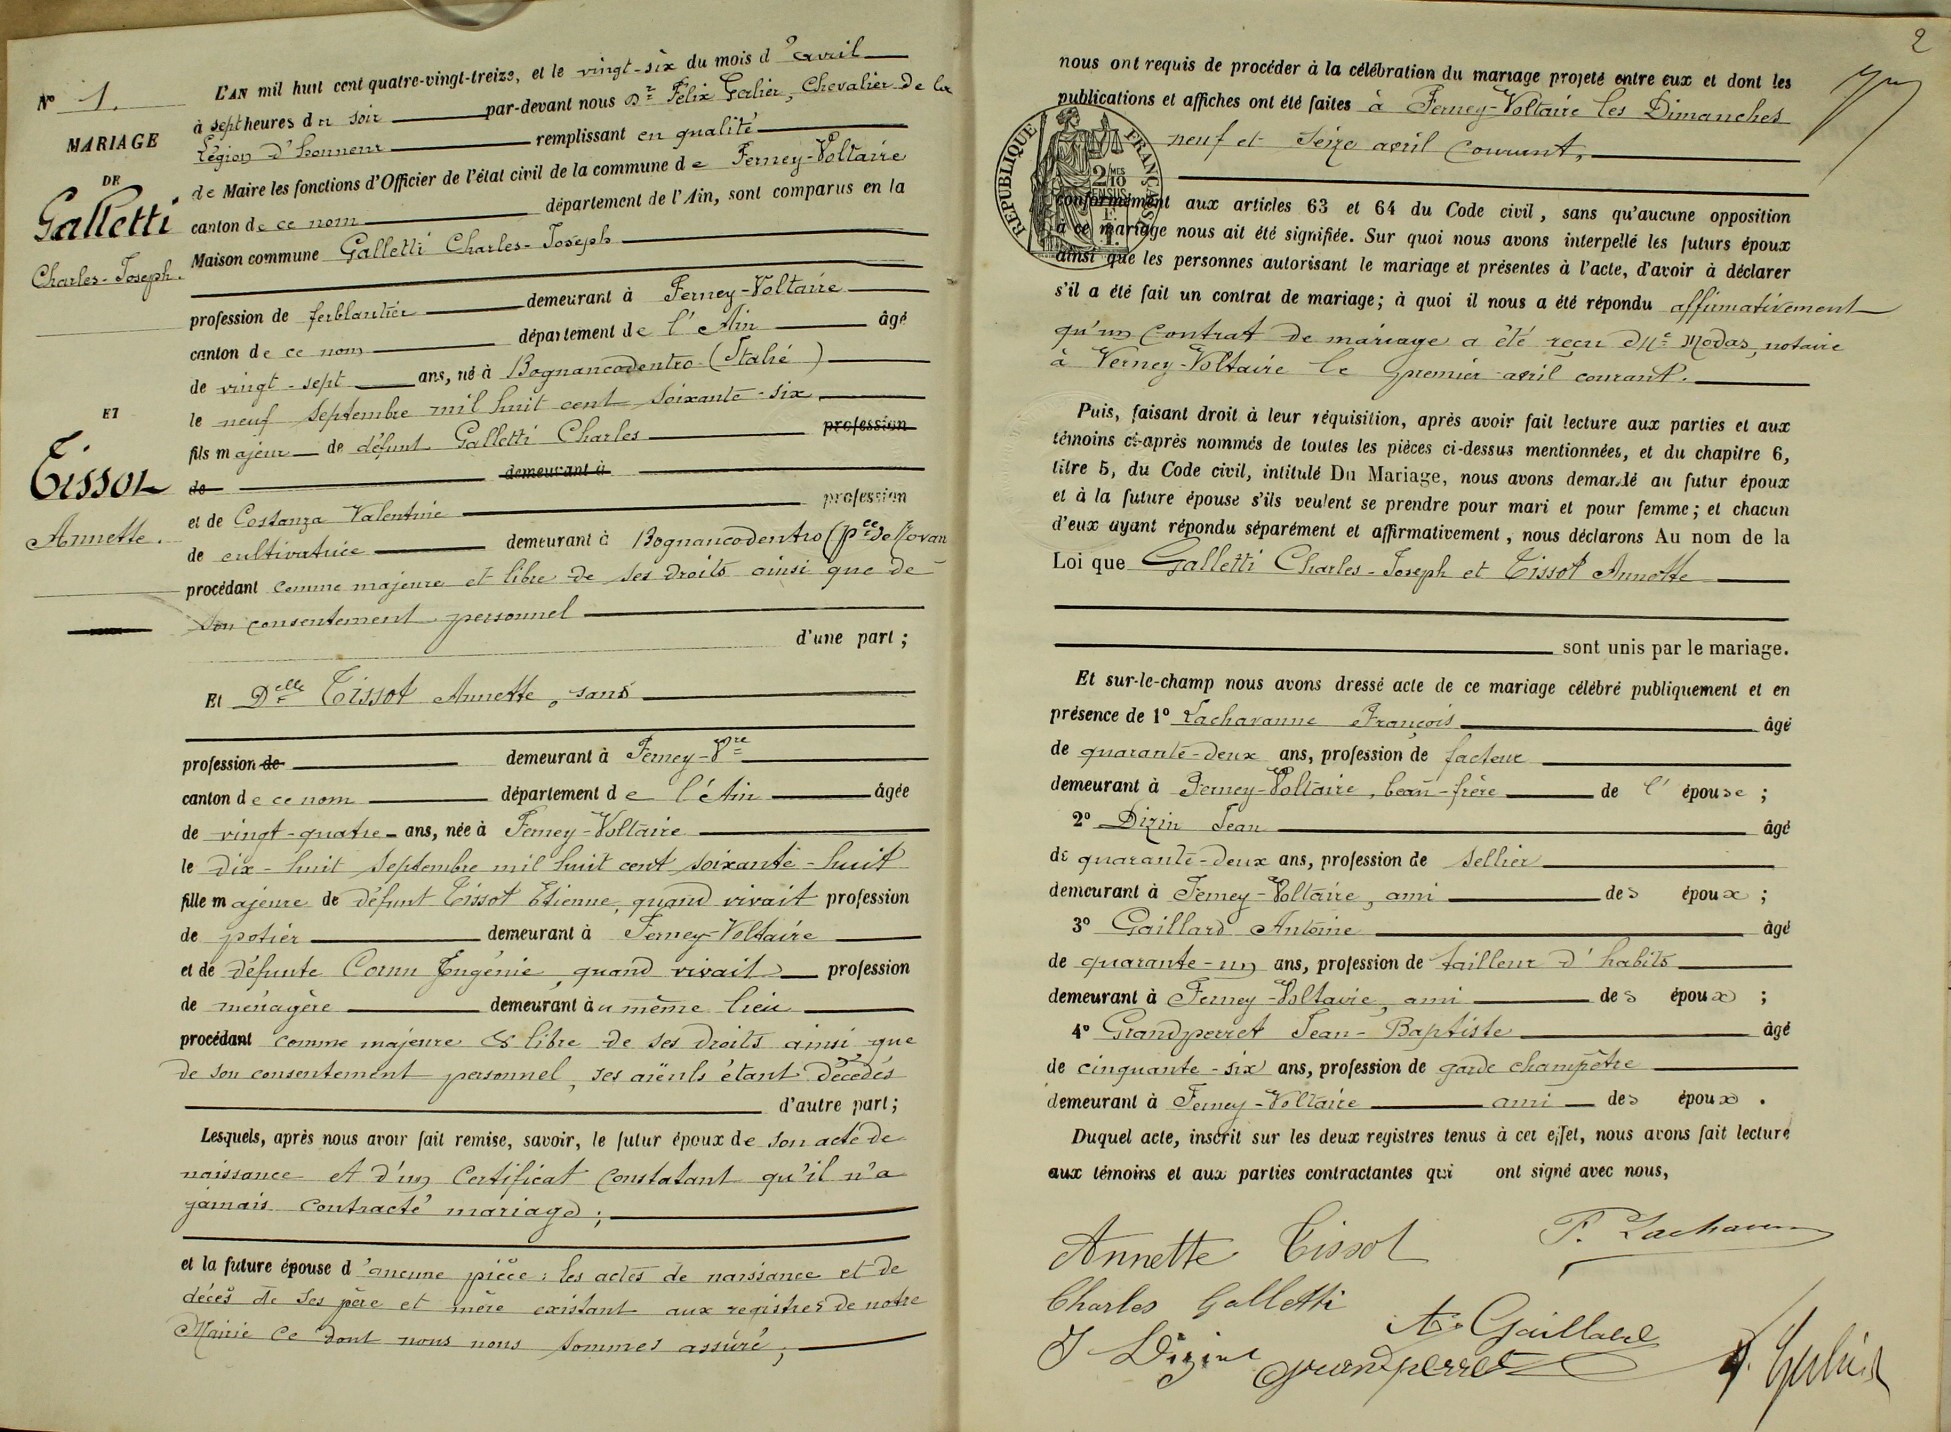 N° 1.
MARIAGE
DE
Galletti
Charles-Joseph.
ET
Tissot
Annette.
L'AN mil huit cent quatre-vingt-treize, et le vingt-six du mois d'avril
à sept heures du soir par-devant nous Dr Félix Gerlier, Chevalier de la
Légion d'honneur remplissant en qualité
de Maire les fonctions d'Officier de l'état civil de la commune de Ferney-Voltaire
canton de ce nom département de l'Ain, sont comparus en la
Maison commune Galletti Charles-Joseph
profession de ferblantier demeurant à Ferney-Voltaire
canton de ce nom département de l'Ain âgé
de vingt-sept ans, né à Bognancodentro (Italie)
le neuf septembre mil huit cent soixante-six,
fils majeur de défunt Galletti Charles profession
de demeurant à
et de Costanza Valentine profession
de cultivatrice demeurant à Bognancodentro (pce de
procédant comme majeure et libre de ses droits ainsi que de
son consentement personnel
d'une part;
Et Delle Tissot Annette, sans
profession de demeurant à Ferney-Vre
canton de ce nom département de l'Ain âgée
de vingt-quatre ans, née à Ferney-Voltaire
le dix-huit septembre mil huit cent soixante-huit
fille majeure de défunt Tissot Etienne, quand vivait profession
de potier demeurant à Ferney-Voltaire
et de défunte Cornu Eugénie, quand vivait profession
de ménagère demeurant au même lieu
procédant comme majeure & libre de ses droits ainsi que
de son consentement personnel, ses aïeuls étant décédés
d'autre part;
Lesquels, après nous avoir fait remise, savoir, le futur époux de son acte de
naissance et d'un Certificat constatant qu'il n'a
jamais contracté mariage;
et la future épouse d'aucune pièce: les actes de naissance et de
décès de ses père et mère existant aux registres de notre
Mairie ce dont nous nous sommes assuré;
2
nous ont requis de procéder à la célébration du mariage projeté entre eux et dont les
publications et affiches ont été faites à Ferney-Voltaire les Dimanches
neuf et seize avril courant,
RÉPUBLIQUE FRANÇAISE
2/10 EN SUS
conformément aux articles 63 et 64 du Code civil, sans qu'aucune opposition
à ce mariage nous ait été signifiée. Sur quoi nous avons interpellé les futurs époux
ainsi que les personnes autorisant le mariage et présentes à l'acte, d'avoir à déclarer
s'il a été fait un contrat de mariage; à quoi il nous a été répondu affirmativement
qu'un contrat de mariage a été reçu Me Modas, notaire
à Verney-Voltaire le premier avril courant.
Puis, faisant droit à leur réquisition, après avoir fait lecture aux parties et aux
témoins ci-après nommés de toutes les pièces ci-dessus mentionnées, et du chapitre 6,
titre 5, du Code civil, intitulé Du Mariage, nous avons demandé au futur époux
et à la future épouse s'ils veulent se prendre pour mari et pour femme; et chacun
d'eux ayant répondu séparément et affirmativement, nous déclarons Au nom de la
Loi que Galletti Charles-Joseph et Tissot Annette
sont unis par le mariage.
Et sur-le-champ nous avons dressé acte de ce mariage célébré publiquement et en
présence de 1° Lachavanne François âgé
de quarante-deux ans, profession de facteur
demeurant à Ferney-Voltaire, beau-frère de l'épouse;
2° Dizin Jean âgé
de quarante-deux ans, profession de sellier
demeurant à Ferney-Voltaire, ami des époux;
3° Gaillard Antoine âgé
de quarante-un ans, profession de tailleur d'habits
demeurant à Ferney-Voltaire, ami des époux;
4° Grandperret Jean-Baptiste âgé
de cinquante-six ans, profession de garde champêtre
demeurant à Ferney-Voltaire ami des époux.
Duquel acte, inscrit sur les deux registres tenus à cet effet, nous avons fait lecture
aux témoins et aux parties contractantes qui ont signé avec nous,
Annette Tissot F. Lachavanne
Charles Galletti
At. Gaillard
J Dizin Grandperret